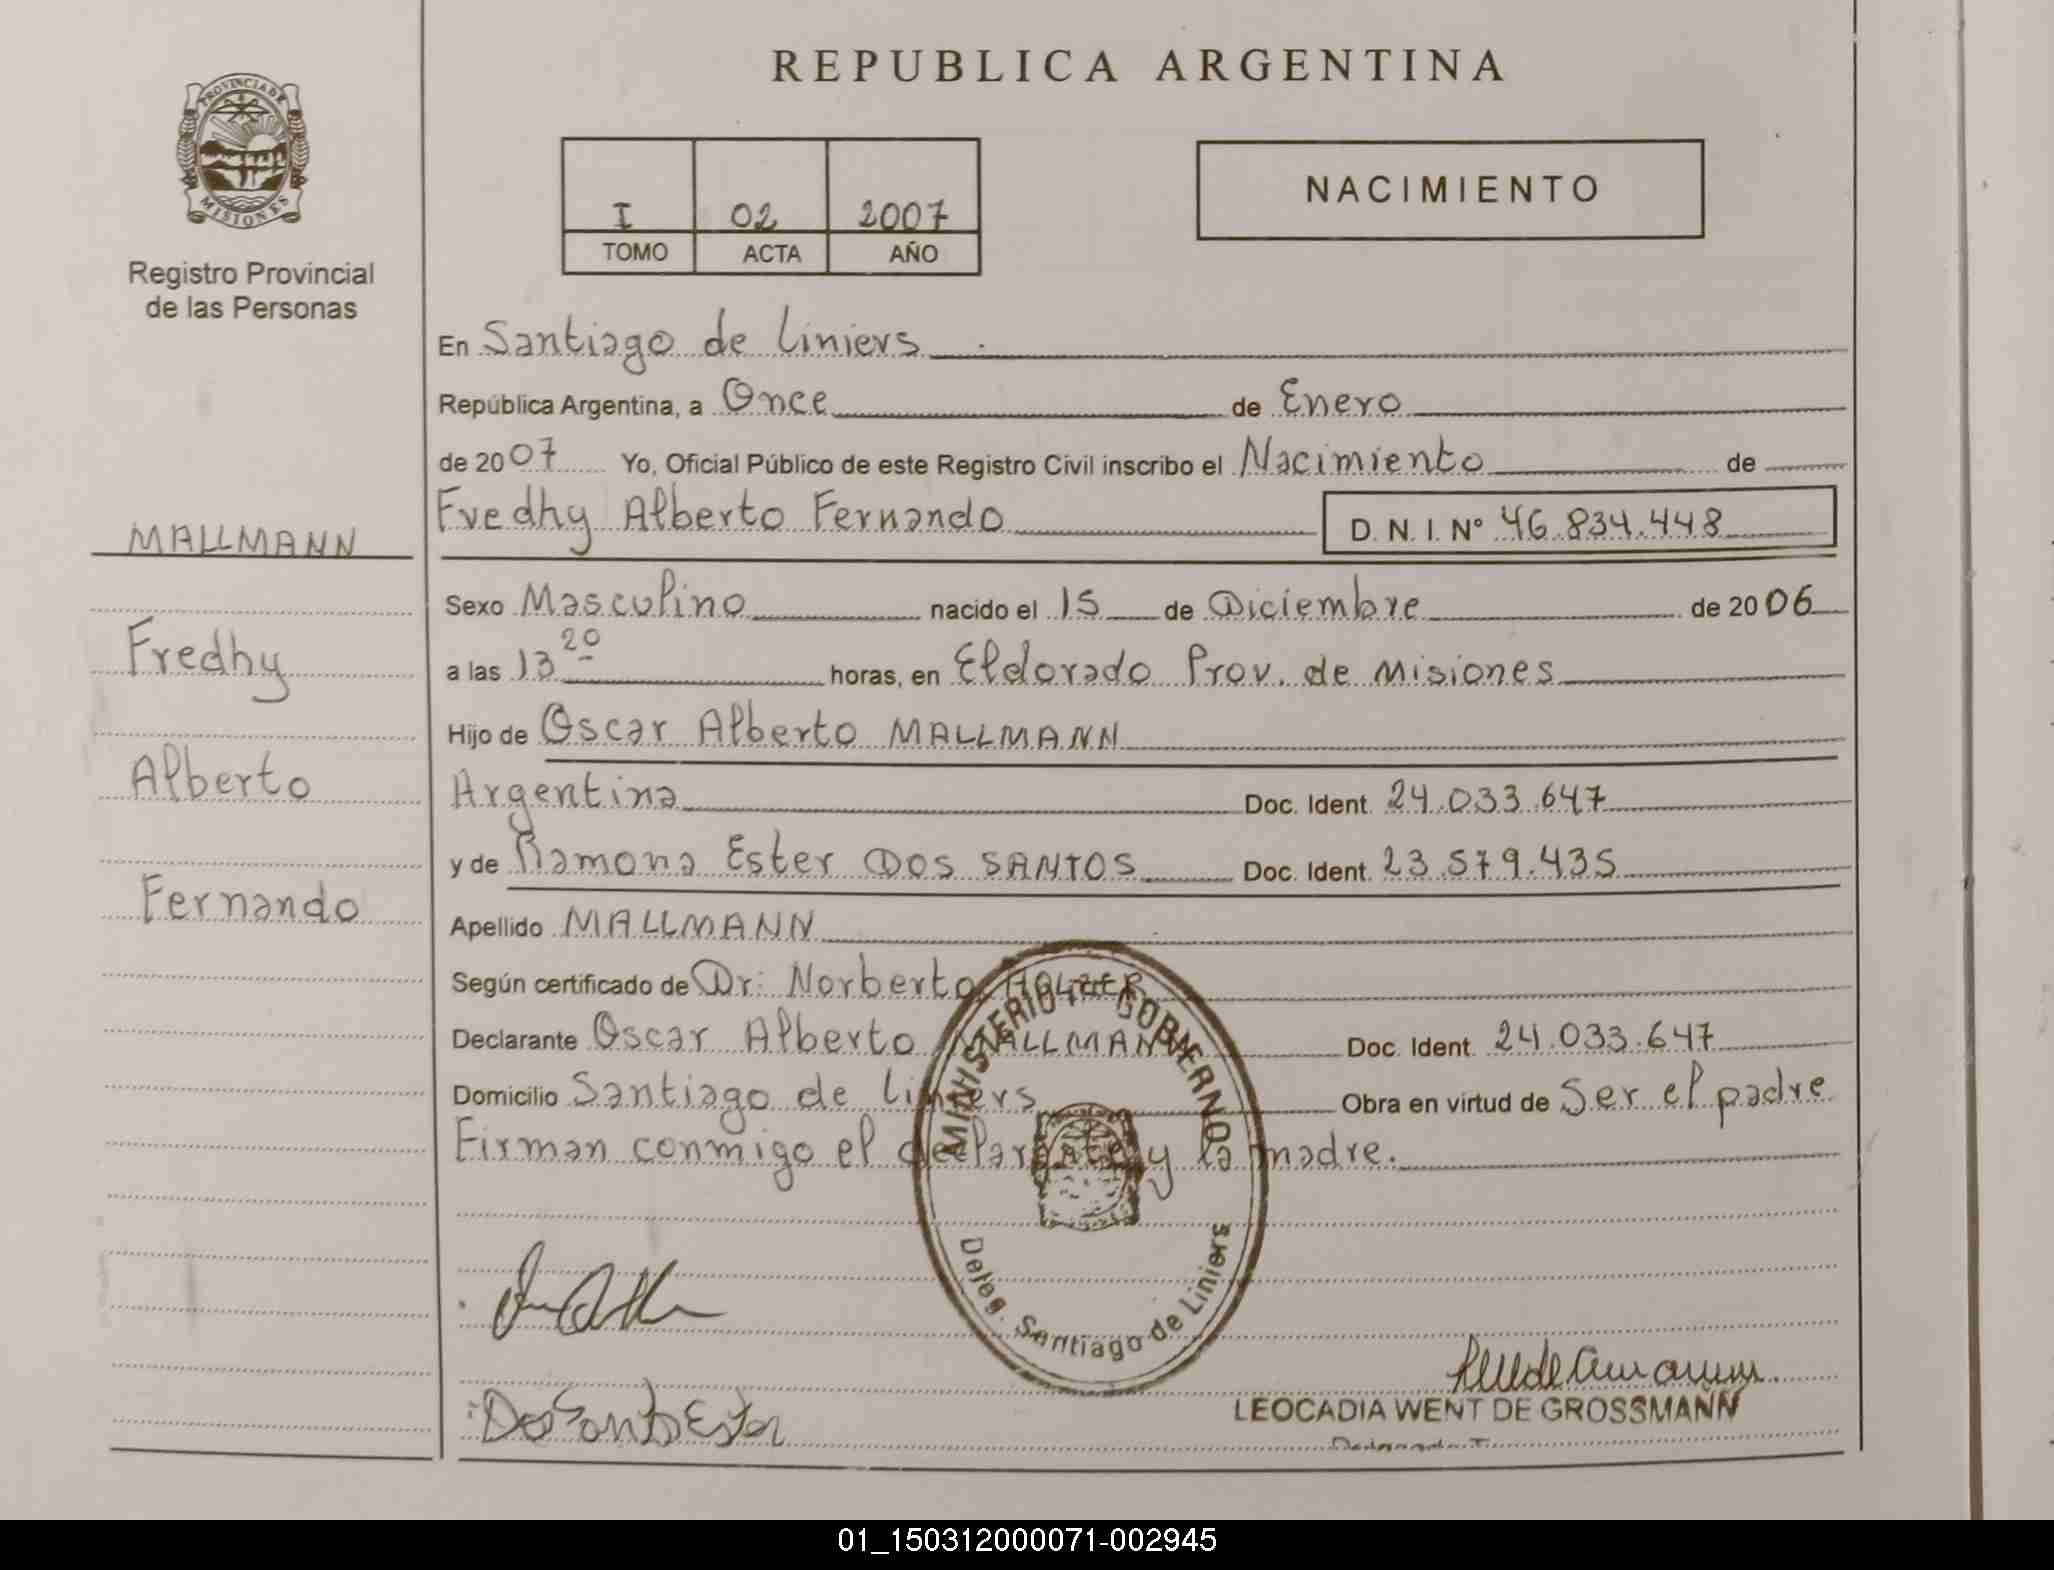 REPUBLICA ARGENTINA
PROVINCIA DE
MISIONES
Registro Provincial
de las Personas
I 02 2007
TOMO ACTA AÑO
NACIMIENTO
En Santiago de Liniers
República Argentina, a Once de Enero
de 2007 Yo, Oficial Público de este Registro Civil inscribo el Nacimiento de
Fredhy Alberto Fernando D. N. I. Nº 46.834.448
MALLMANN
Fredhy
Alberto
Fernando
Sexo Masculino nacido el 15 de Diciembre de 2006
a las 13 20 horas, en Eldorado Prov. de Misiones
Hijo de Oscar Alberto MALLMANN
Argentina Doc. Ident. 24.033.647
y de Ramona Ester DOS SANTOS Doc. Ident. 23.579.435
Apellido MALLMANN
Según certificado de Dr: Norberto
Declarante Oscar Alberto MALLMANN Doc. Ident. 24.033.647
Domicilio Santiago de Liniers Obra en virtud de Ser el padre
Firman conmigo el declarante y la madre.
MINISTERIO GOBIERNO
Deleg. Santiago de Liniers
Dos Santos Ester
LEOCADIA WENT DE GROSSMANN
01_150312000071-002945